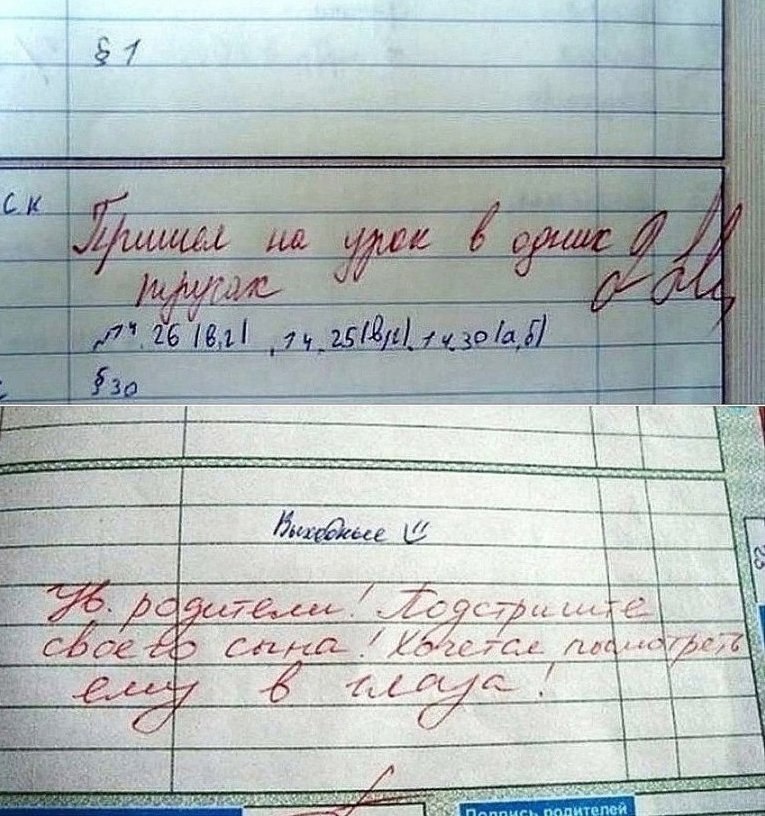 § 1
ск
Пришел на урок в одних
трусах
№14.26 (в,г), 14.25(в,г), 14.30(а,б)
§30
Выходные
Ув. родители! Подстригите
своего сына! Хочется посмотреть
ему в глаза!
23
Подпись родителей